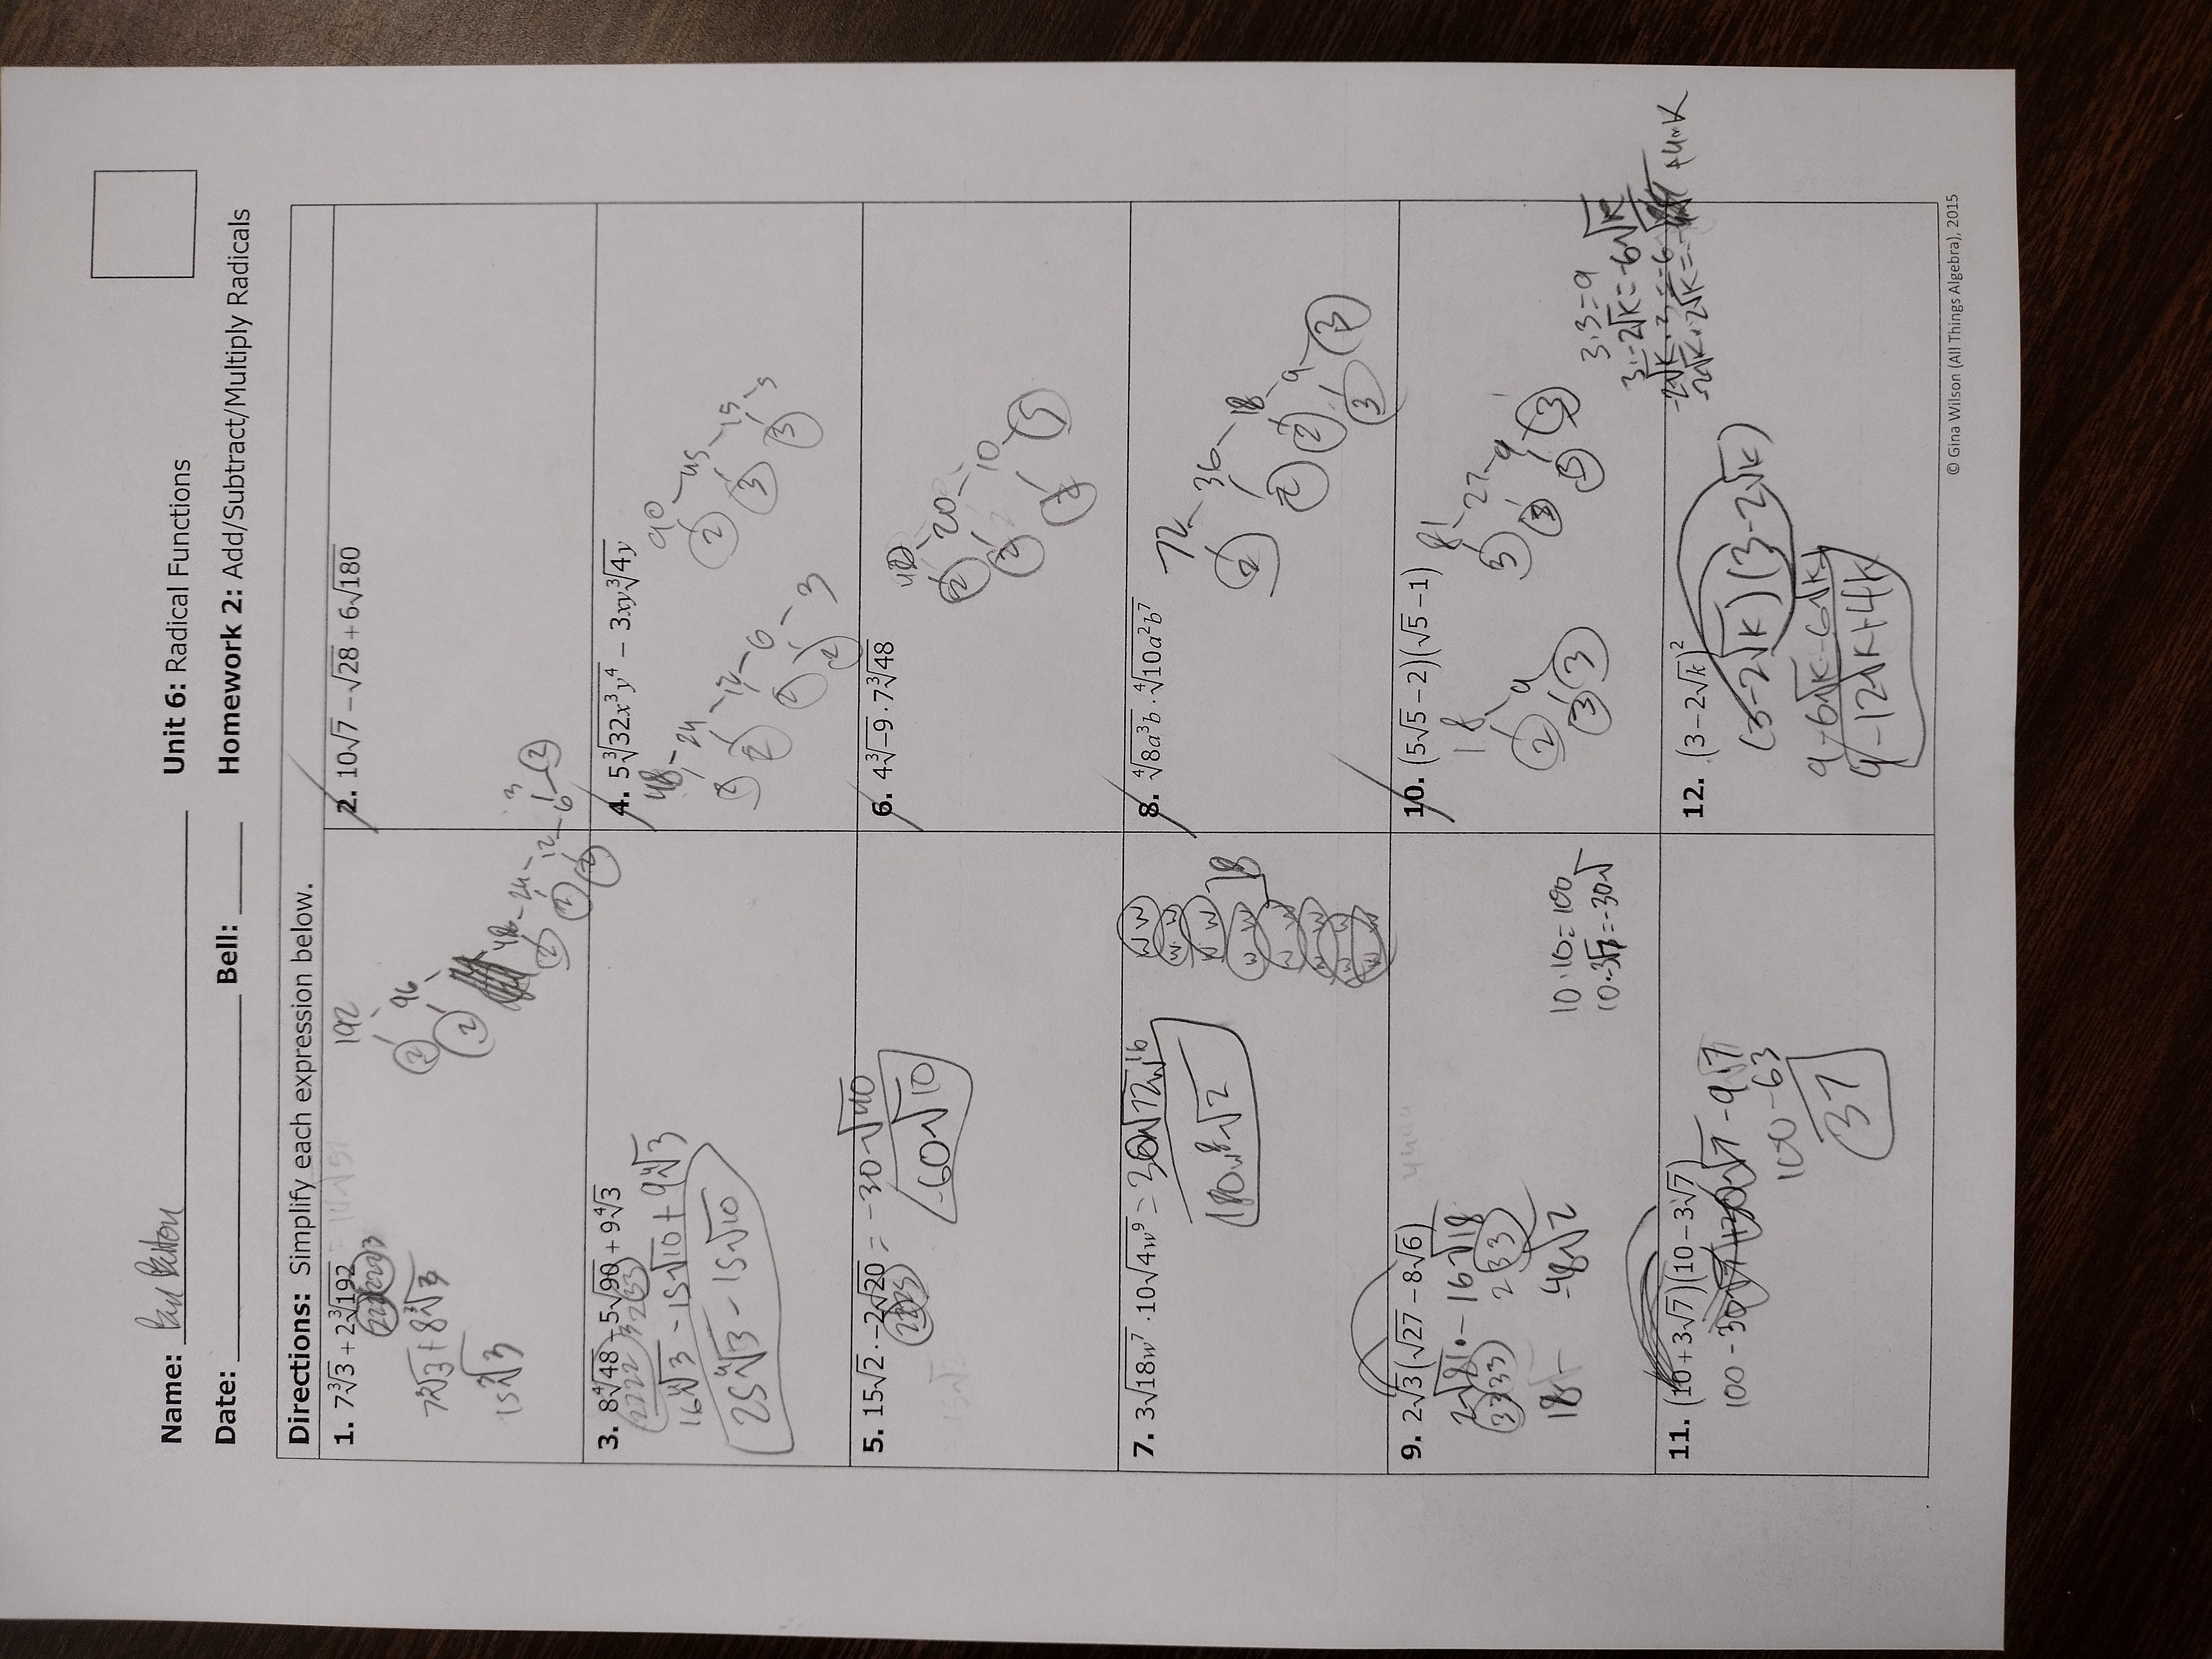 Name:
Unit 6: Radical Functions
Date: Bell:
Homework 2: Add/Subtract/Multiply Radicals
Directions: Simplify each expression below.
1. 7∛3 + 2∛192
222 222 3
7∛3 + 8∛3
15∛3
192
2 96
2
48 - 24 - 12 - 6 - 2
2 2 2 3
2. 10√7 − √28 + 6√180
3. 8∜48 − 5√90 + 9∜3
2222 3 2 33
16∜3 − 15√10 + 9∜3
25∜3 − 15√10
4. 5∛32x³y⁴ − 3xy∛4y
48 - 24 - 12 - 6 - 3
2 2 2 2
90 - 45 - 15 - 5
2 3 3
5. 15√2 · −2√20 = −30√40
2225
-60√10
6. 4∛−9 · 7∛48
40 - 20 - 10 - 5
2 2 2
7. 3√18w⁷ · 10√4w⁹ = 30√72w¹⁶
180w⁸√2
w w
w w
w w
w w
w w
w w
w w
w w
8
8. ∜8a³b · ∜10a²b⁷
72 - 36 - 18 - 9 - 3
2 2 2 3
9. 2√3(√27 − 8√6)
2√81 − 16√18
3333 2 33
18 − 48√2
10·10=100
10·-3√7=-30√
10. (5√5 − 2)(√5 − 1)
18
2 9
3 3
81 - 27 - 9 - 3
3 3 3
3·3=9
3·-2√k=-6√k
-2√k·3=-6
-2√k·2√k=- +4k
11. (10 + 3√7)(10 − 3√7)
100 − 30√7 + 30√7 − 9·7
100 − 63
37
12. (3 − 2√k)²
(3−2√k)(3−2√k)
9 − 6√k − 6√k
9 − 12√k + 4k
© Gina Wilson (All Things Algebra), 2015